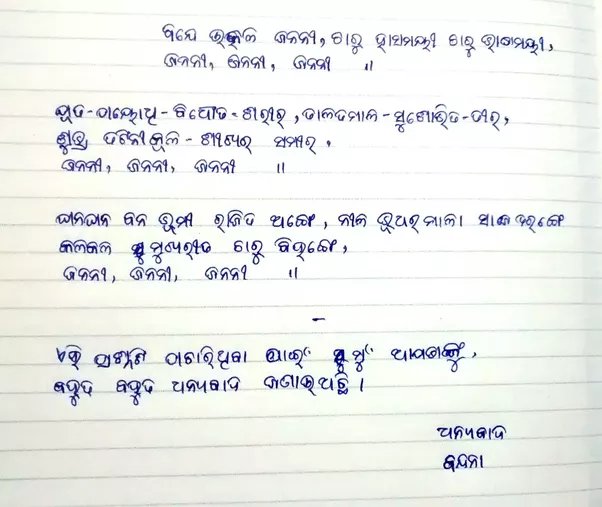 ବନ୍ଦେ ଉତ୍କଳ ଜନନୀ, ଚାରୁ ହାସମୟୀ ଚାରୁ ଭାଷମୟୀ,
ଜନନୀ, ଜନନୀ, ଜନନୀ ॥
ପୂତ-ପୟୋଧି-ବିଧୌତ-ଶରୀର, ତାଳତମାଳ-ସୁଶୋଭିତ-ତୀର,
ଶୁଭ୍ର ତଟିନୀକୂଳ-ଶୀକର ସମୀର,
ଜନନୀ, ଜନନୀ, ଜନନୀ ॥
ଘନଘନ ବନ ଭୂମି ରାଜିତ ଅଙ୍ଗେ, ନୀଳ ଭୂଧରମାଳା ସାଜେ ତରଙ୍ଗେ
କଳକଳ ମୁଖରିତ ଚାରୁ ବିହଙ୍ଗେ,
ଜନନୀ, ଜନନୀ, ଜନନୀ ॥
ଏହି ପ୍ରଶ୍ନଟି ପଚାରିଥିବା ପାଇଁ ମୁଁ ଆପଣଙ୍କୁ,
ବହୁତ ବହୁତ ଧନ୍ୟବାଦ ଜଣାଉଅଛି।
ଧନ୍ୟବାଦ
ବନ୍ଦନା